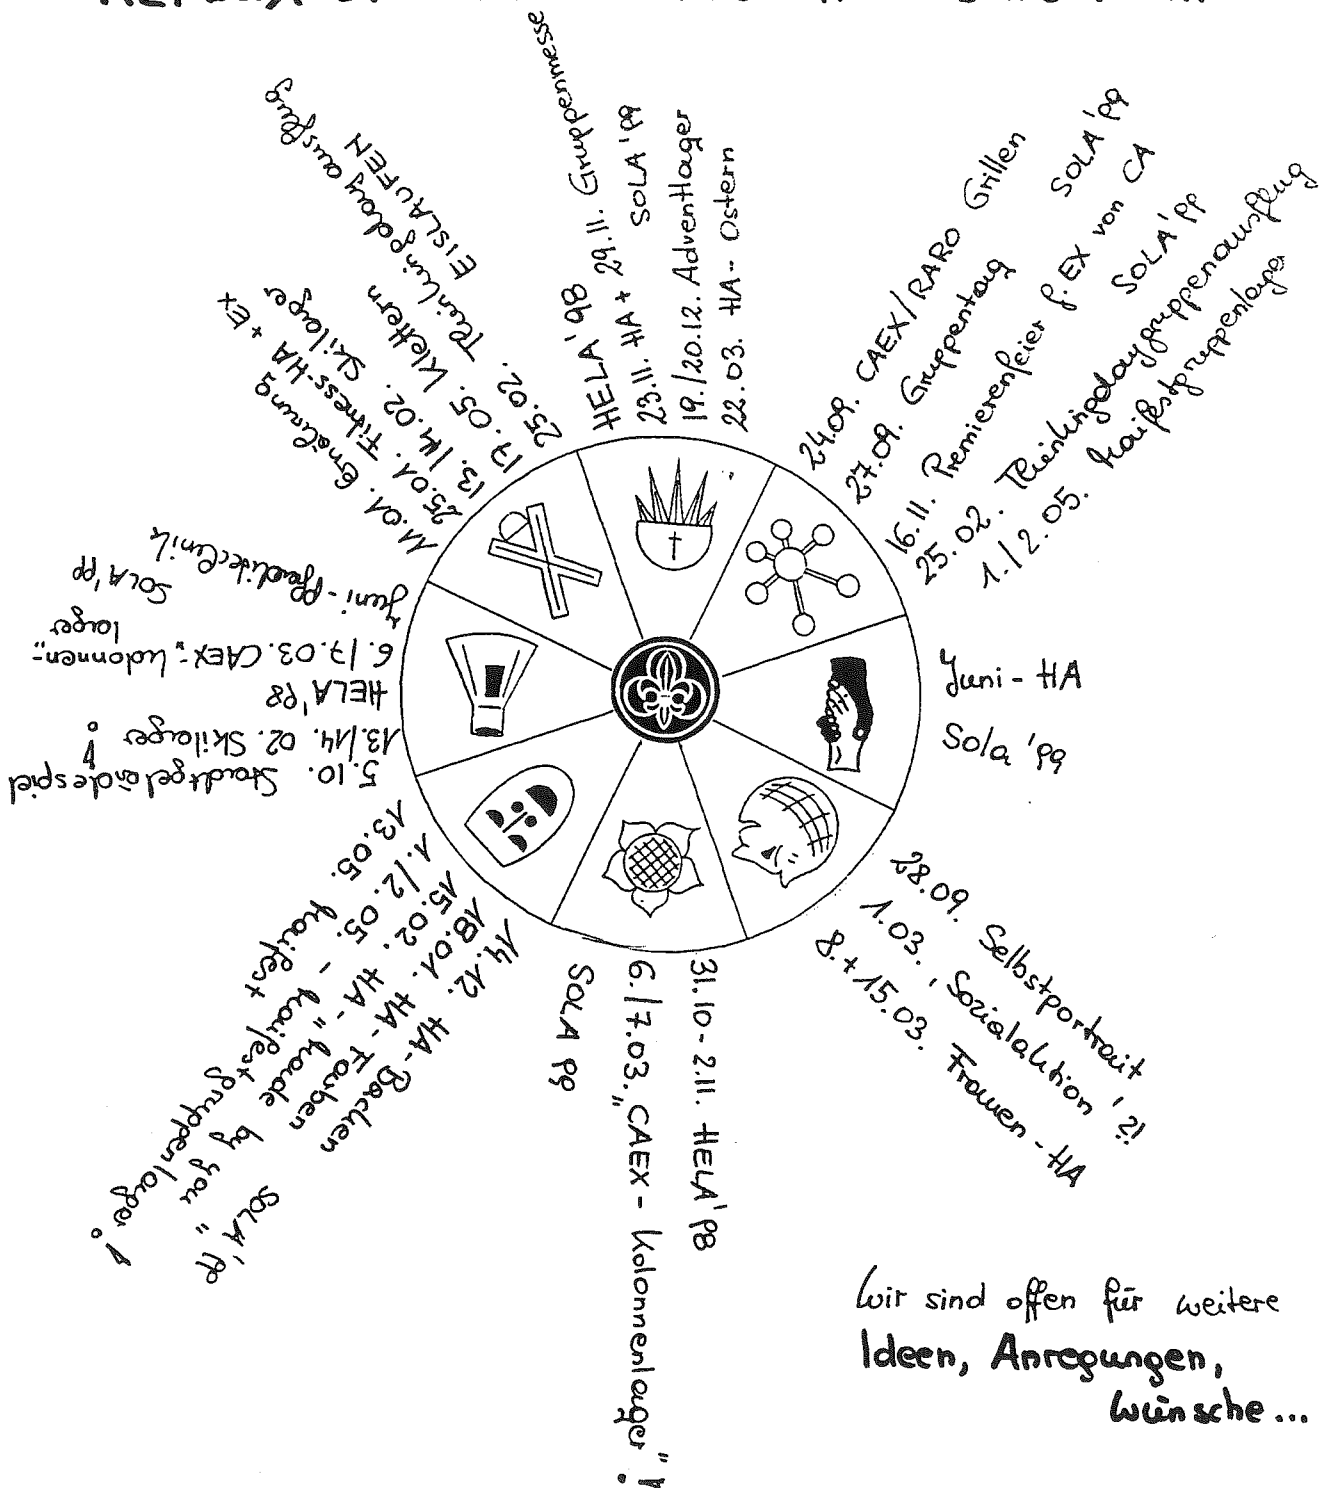 HELA '98
23.11. HA + 29.11. Gruppenmesse
SOLA '99
19./20.12. Adventlager
22.03. HA - Ostern
24.09. CAEX/RARO Grillen
27.09. Gruppentag
SOLA '99
16.11. Premierenfeier f. EX von CA
SOLA '99
25.02. Thinkingdaygruppenausflug
1./2.05. Maifestgruppenlager
Juni - HA
Sola '99
28.09. Selbstportrait
1.03. 'Sozialaktion' ?!
8.+15.03. Frauen - HA
31.10 - 2.11. HELA '98
6./7.03. „CAEX - Kolonnenlager"!
SOLA 99
14.12. HA - Backen
18.01. HA - Farben
15.02. HA - "Made by you"
SOLA '99
1./2.05. - Maifestgruppenlager!
13.05. Maifest
5.10. Stadtgeländespiel
13./14.02. Skilager!
HELA '98
6./7.03. CAEX - „Kolonnen-
lager
SOLA '99
Juni - Pfaditechnik
11.01. Ernährung
25.01. Fitness-HA + EX
13./14.02. Skilager
17.05. Klettern
25.02. Thinkingdayausflug
EISLAUFEN
Wir sind offen für weitere
Ideen, Anregungen,
Wünsche...